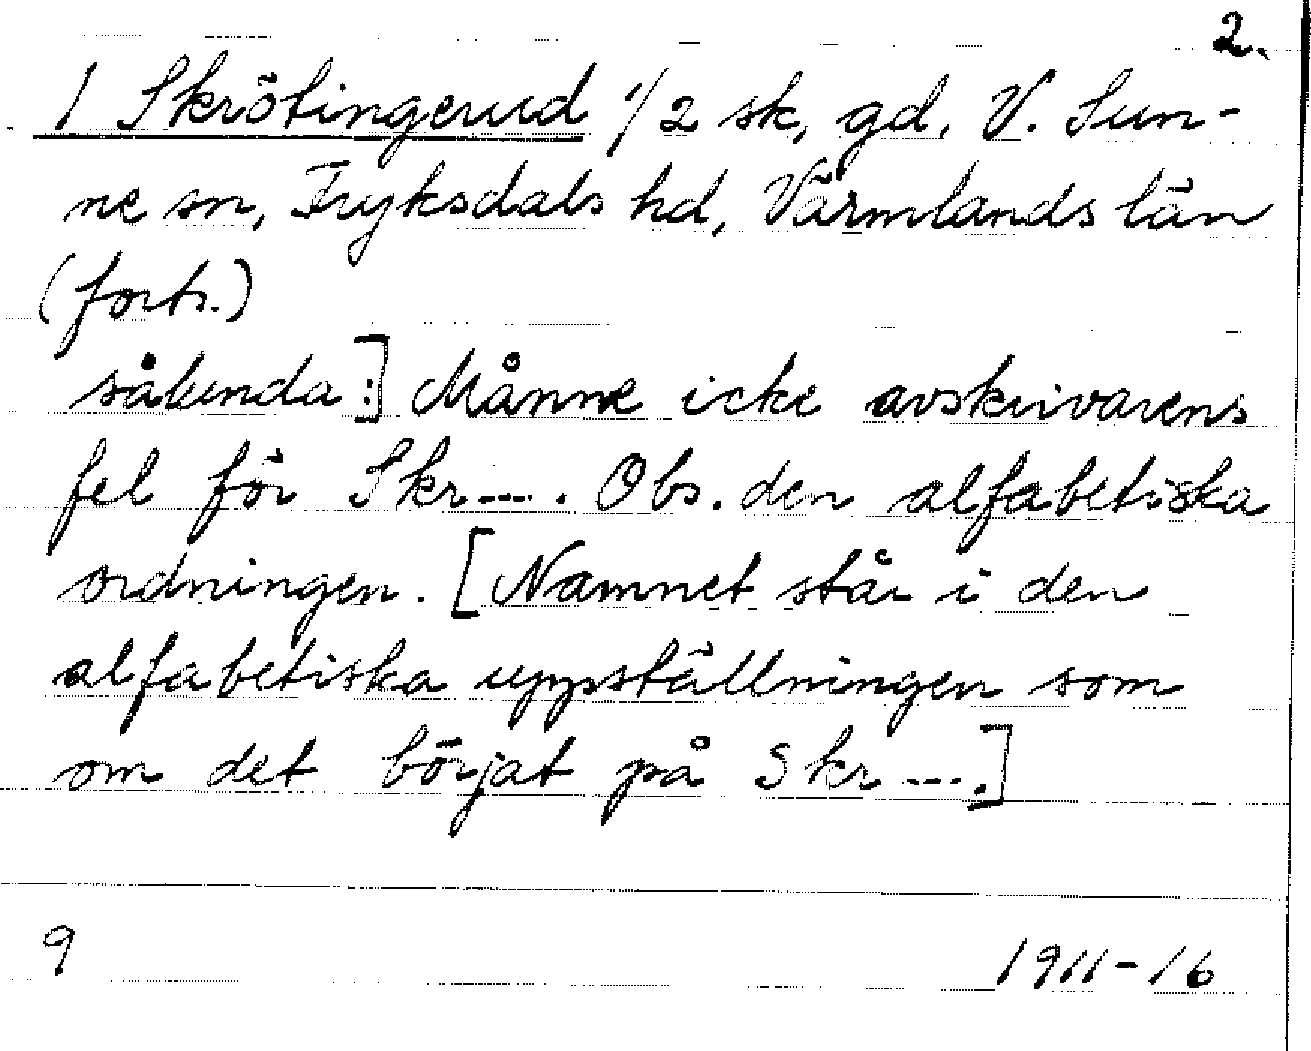 2.
1 Skrötingerud 1/2 sk, gd, V. Sun-
ne sn, Fryksdals hd, Värmlands län
(forts.)
sålunda:] Månne icke avskrivarens
fel för Skr---. Obs. den alfabetiska
ordningen. [Namnet står i den
alfabetiska uppställningen som
om det börjat på Skr---.]
9
1911-16